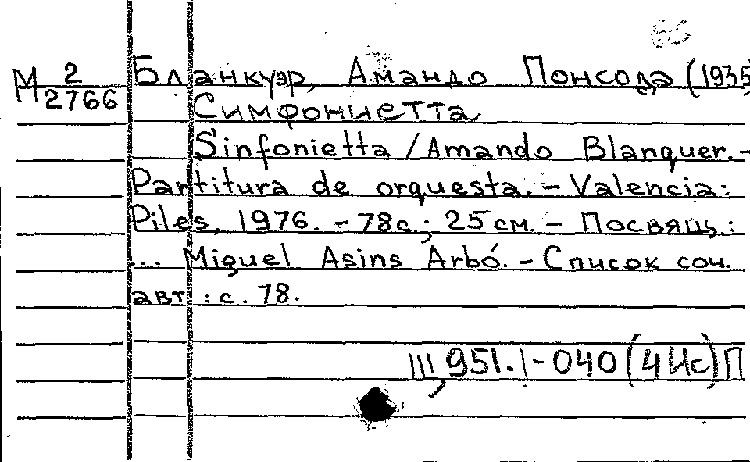 М 2/2766 Бланкуэр, Амандо Понсода (1935
Симфониетта
Sinfonietta / Amando Blanquer. -
Partitura de orquesta. - Valencia:
Piles, 1976. - 78с.; 25 см. - Посвящ.:
... Miguel Asins Arbó. - Список соч.
авт.: с. 78.
III, 951.1-040(4Ис)П